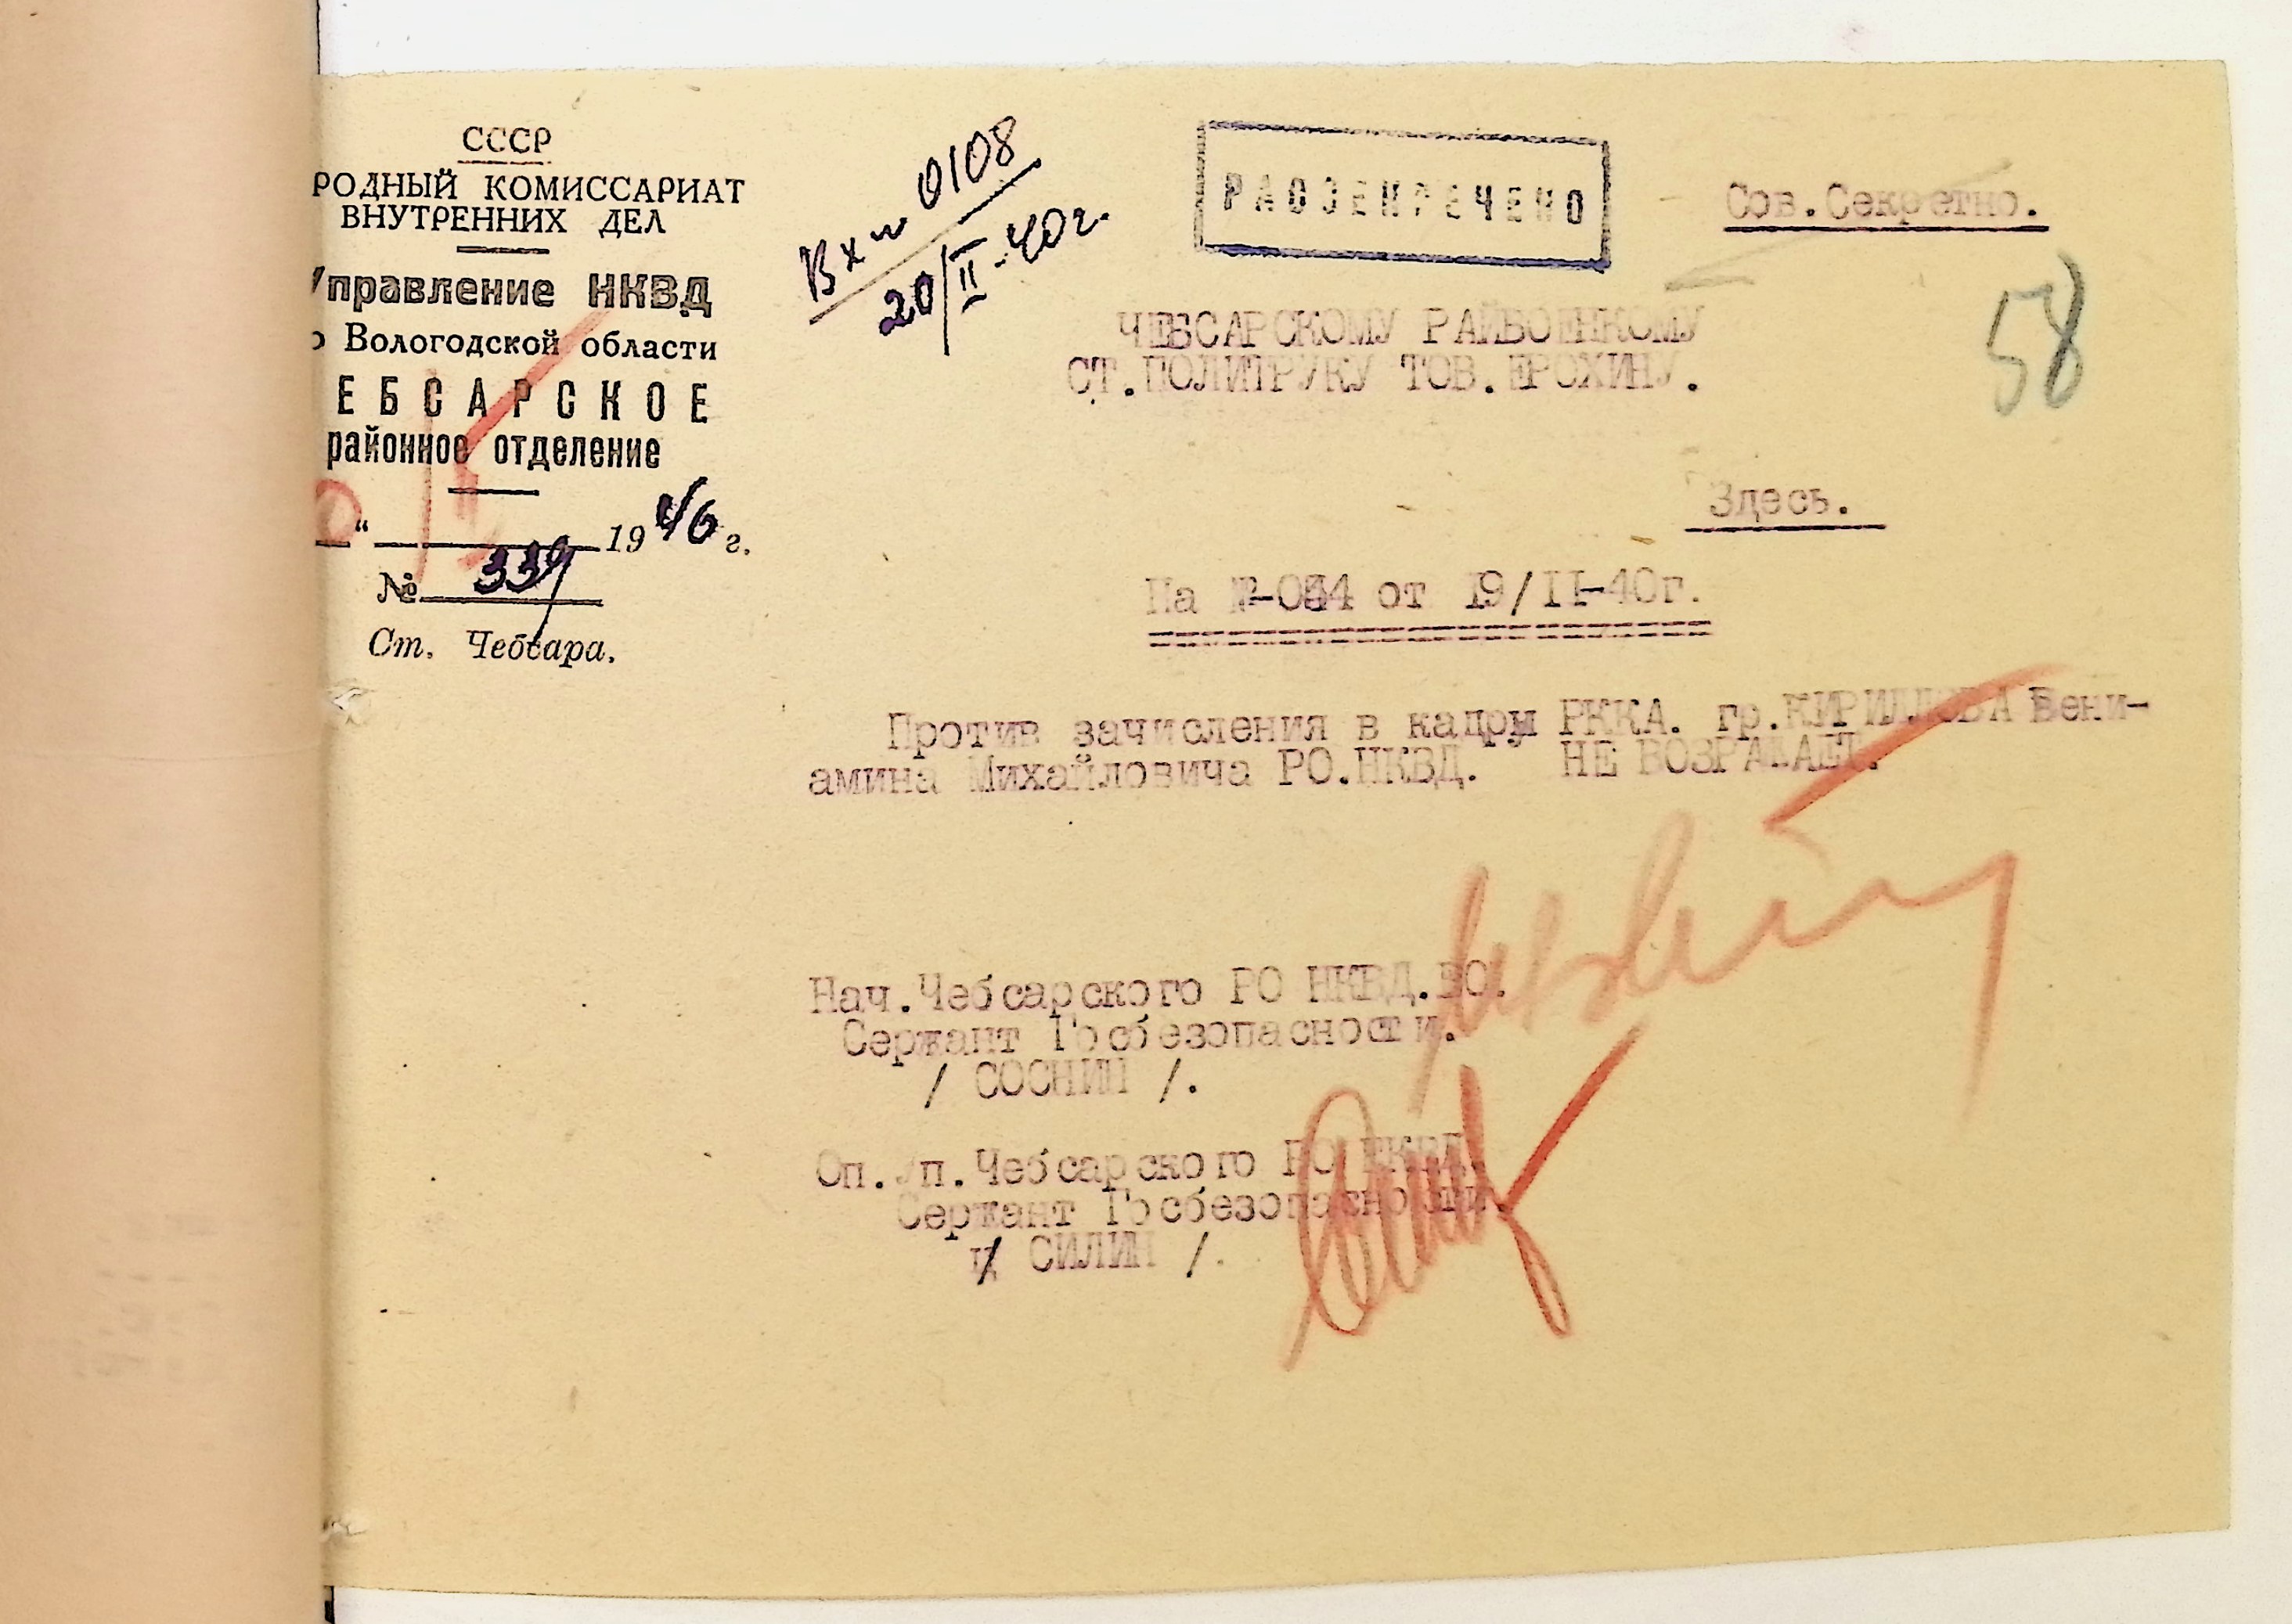 СССР
РОДНЫЙ КОМИССАРИАТ
ВНУТРЕННИХ ДЕЛ
Управление НКВД
о Вологодской области
ЕБСАРСКОЕ
районное отделение
" 1940 г.
№ 339
Ст. Чебсара.
Вх № 0108
20/II-40г.
РАССЕКРЕЧЕНО
Сов.Секретно.
58
ЧЕБСАРСКОМУ РАЙВОЕНКОМУ
СТ.ПОЛИТРУКУ ТОВ.ЕРОХИНУ.
Здесь.
На от 19/II-40г.
Против зачисления в кадры РККА. гр.КИРИЛЛОВА Вени-
амина Михайловича РО.НКВД. НЕ ВОЗРАЖАЕТ.
Нач.Чебсарского РО НКВД.ВО.
Сержант Госбезопасности.
/ СОСНИН /.
Оп.Уп.Чебсарского РО НКВД
Сержант Госбезопасности
/ СИЛИН /.